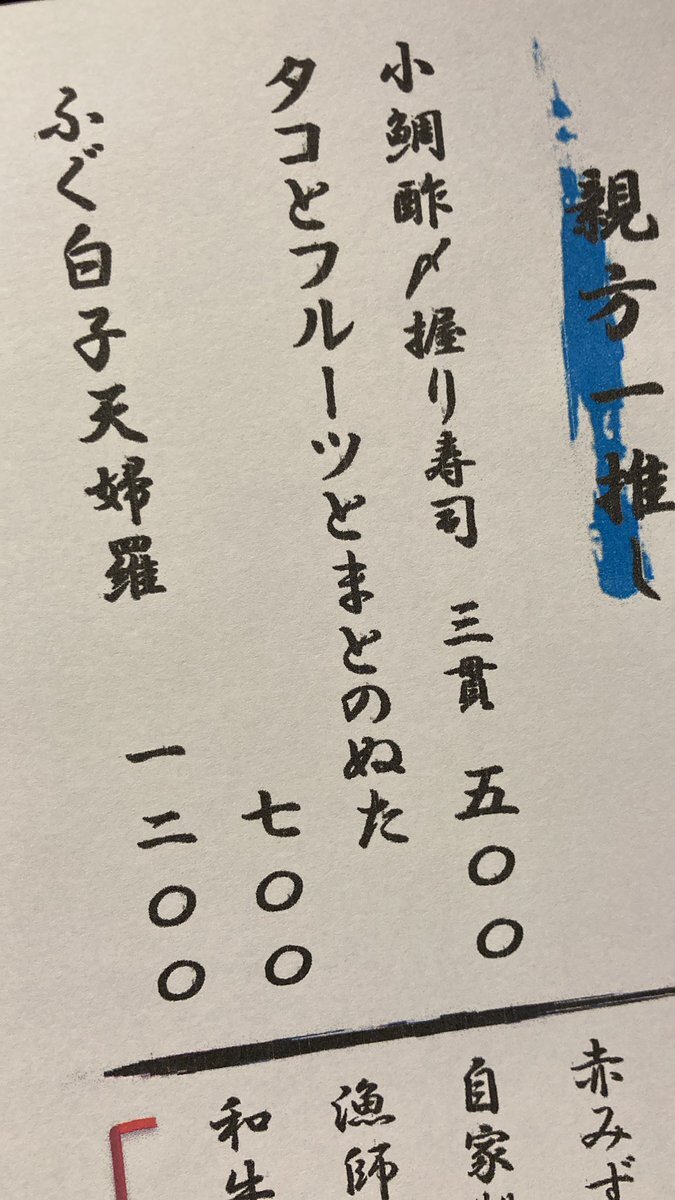 親方一推し
小鯛酢〆握り寿司 三貫 五〇〇
タコとフルーツとまとのぬた
七〇〇
ふぐ白子天婦羅 一二〇〇
赤みず
自家
漁師
和牛